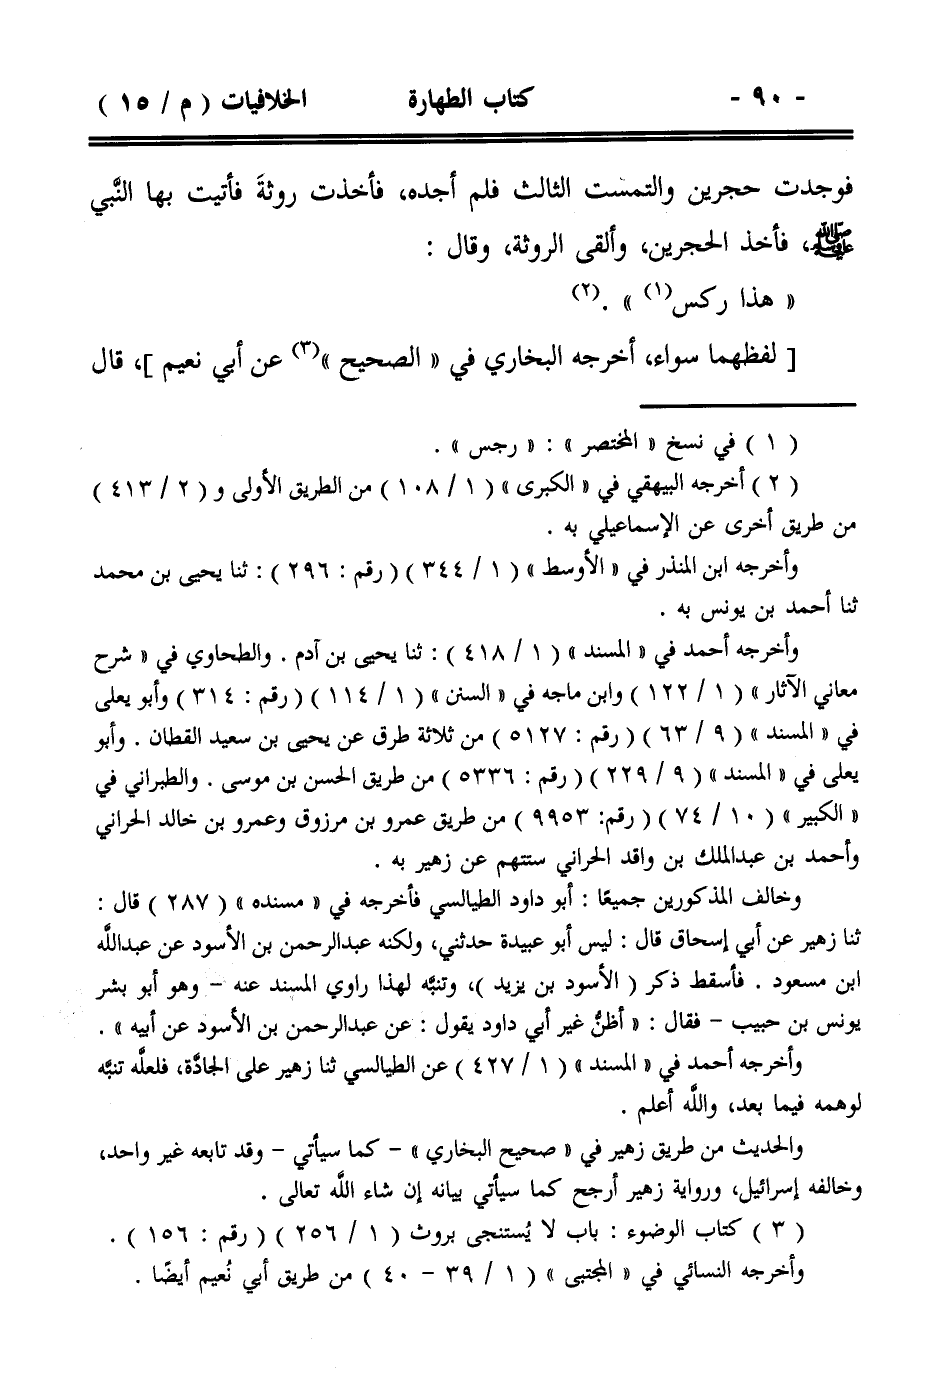 - ٩٠ - كتاب الطهارة الخلافيات ( م / ١٥ )
فوجدت حجرين والتمست الثالث فلم أجده، فأخذت روثةَ فأتيت بها النَّبي
ﷺ، فأخذ الحجرين، وألقى الروثة، وقال :
« هذا ركس(١) » .(٢)
[ لفظهما سواء، أخرجه البخاري في « الصحيح »(٣) عن أبي نعيم ]، قال
( ١ ) في نسخ « المختصر » : « رجس » .
( ٢ ) أخرجه البيهقي في « الكبرى » ( ١ / ١٠٨ ) من الطريق الأولى و ( ٢ / ٤١٣ )
من طريق أخرى عن الإسماعيلي به .
وأخرجه ابن المنذر في « الأوسط » ( ١ / ٣٤٤ ) ( رقم : ٢٩٦ ) : ثنا يحيى بن محمد
ثنا أحمد بن يونس به .
وأخرجه أحمد في « المسند » ( ١ / ٤١٨ ) : ثنا يحيى بن آدم . والطحاوي في « شرح
معاني الآثار » ( ١ / ١٢٢ ) وابن ماجه في « السنن » ( ١ / ١١٤ ) ( رقم : ٣١٤ ) وأبو يعلى
في « المسند » ( ٩ / ٦٣ ) ( رقم : ٥١٢٧ ) من ثلاثة طرق عن يحيى بن سعيد القطان . وأبو
يعلى في « المسند » ( ٩ / ٢٢٩ ) ( رقم : ٥٣٣٦ ) من طريق الحسن بن موسى . والطبراني في
« الكبير » ( ١٠ / ٧٤ ) ( رقم: ٩٩٥٣ ) من طريق عمرو بن مرزوق وعمرو بن خالد الحراني
وأحمد بن عبدالملك بن واقد الحراني ستتهم عن زهير به .
وخالف المذكورين جميعًا : أبو داود الطيالسي فأخرجه في « مسنده » ( ٢٨٧ ) قال :
ثنا زهير عن أبي إسحاق قال : ليس أبو عبيدة حدثني، ولكنه عبدالرحمن بن الأسود عن عبداللَّه
ابن مسعود . فأسقط ذكر ( الأسود بن يزيد )، وتنبَّه لهذا راوي المسند عنه - وهو أبو بشر
يونس بن حبيب - فقال : « أظنُّ غير أبي داود يقول : عن عبدالرحمن بن الأسود عن أبيه » .
وأخرجه أحمد في « المسند » ( ١ / ٤٢٧ ) عن الطيالسي ثنا زهير على الجادَّة، فلعلَّه تنبَّه
لوهمه فيما بعد، واللَّه أعلم .
والحديث من طريق زهير في « صحيح البخاري » - كما سيأتي - وقد تابعه غير واحد،
وخالفه إسرائيل، ورواية زهير أرجح كما سيأتي بيانه إن شاء اللَّه تعالى .
( ٣ ) كتاب الوضوء : باب لا يُستنجى بروث ( ١ / ٢٥٦ ) ( رقم : ١٥٦ ) .
وأخرجه النسائي في « المجتبى » ( ١ / ٣٩ - ٤٠ ) من طريق أبي نُعيم أيضًا .